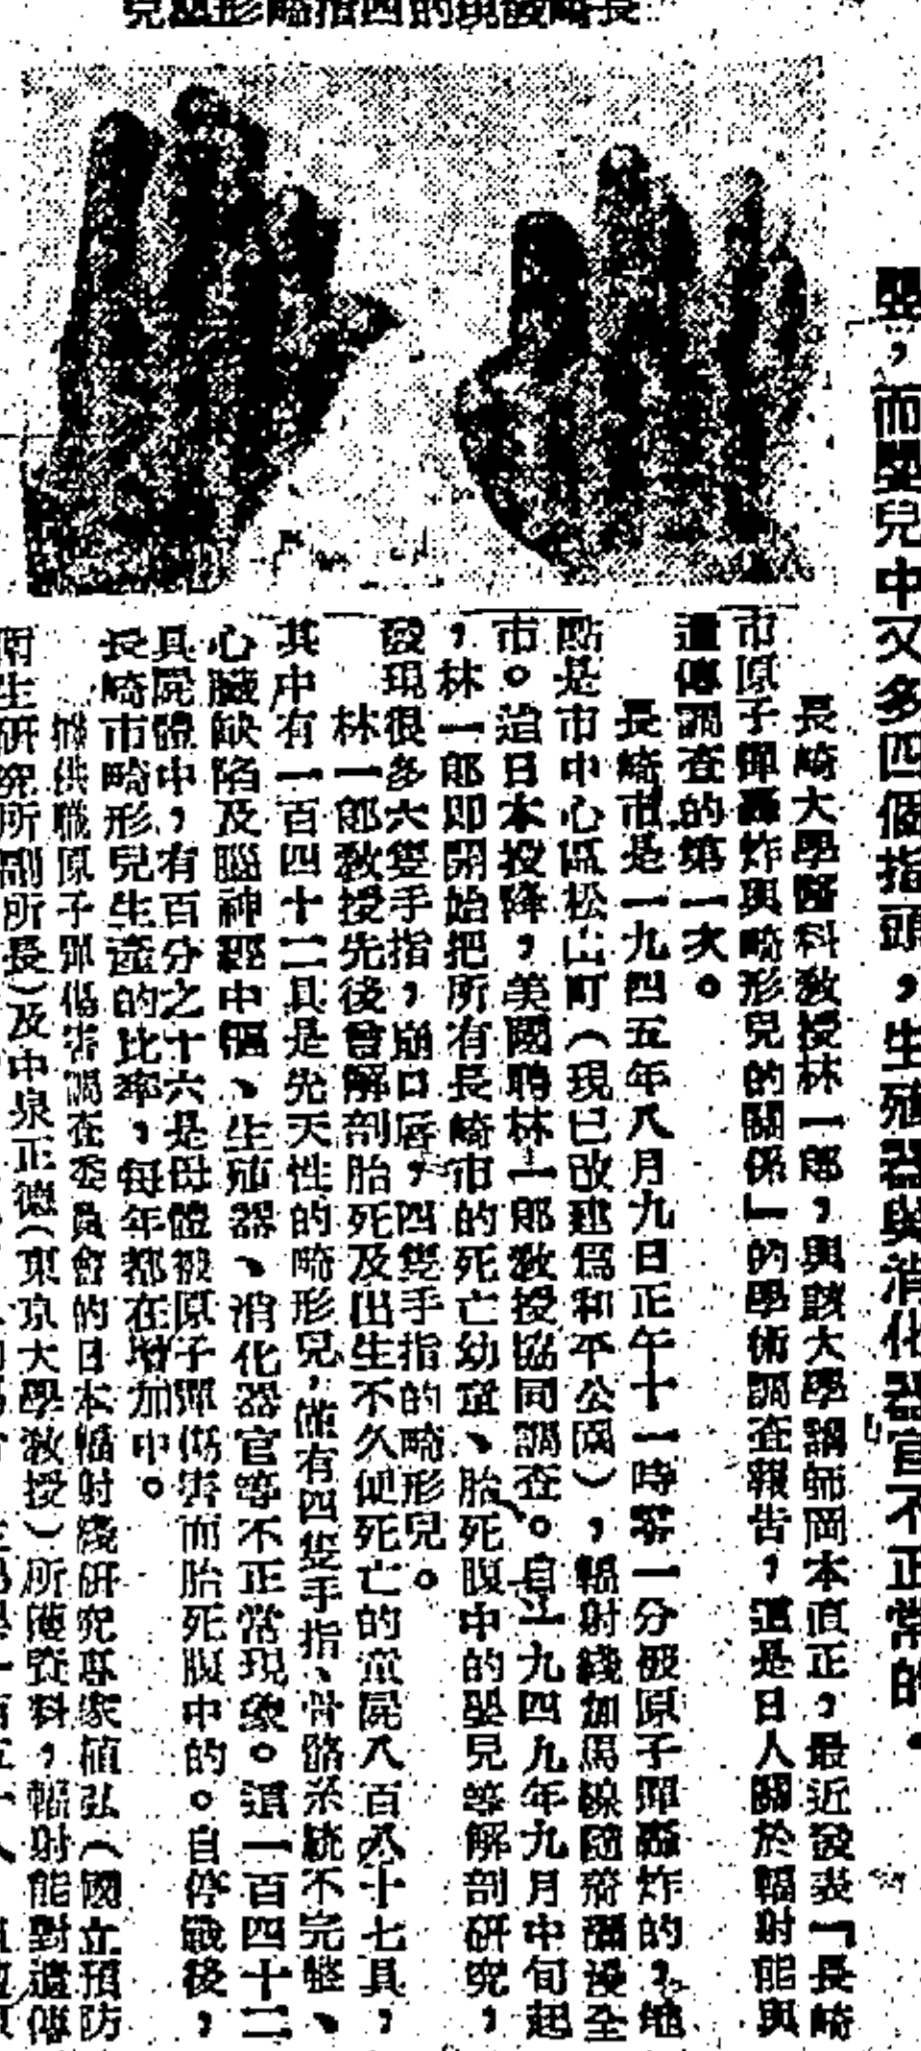 長崎發現的四指畸形嬰兒
嬰，而嬰兒中又多四個指頭，生殖器與消化器官不正常的。
長崎大學醫科教授林一郎，與該大學講師岡本直正，最近發表「長崎
市原子彈轟炸與畸形兒的關係」的學術調查報告，這是日人關於輻射能與
遺傳調查的第一次。
長崎市是一九四五年八月九日正午十一時零一分被原子彈轟炸的，地
點是市中心區松山町（現已改建爲和平公園），輻射綫加馬線隨飛瀰漫全
市。迨日本投降，美國聘林一郎教授協同調查。自一九四九年九月中旬起
，林一郎即開始把所有長崎市的死亡幼童、胎死腹中的嬰兒等解剖研究，
發現很多六隻手指，崩口唇，四隻手指的畸形兒。
林一郎教授先後曾解剖胎死及出生不久便死亡的童屍八百八十七具，
其中有一百四十二具是先天性的畸形兒，僅有四隻手指、骨骼系統不完整、
心臟缺陷及腦神經中樞、生殖器、消化器官等不正常現象。這一百四十二
具屍體中，有百分之十六是母體被原子彈傷害而胎死腹中的。自停戰後，
長崎市畸形兒生產的比率，每年都在增加中。
據供職原子彈傷害調查委員會的日本輻射綫研究專家植弘（國立預防
衛生研究所副所長）及中泉正德（東京大學教授）所獲資料，輻射能對遺傳